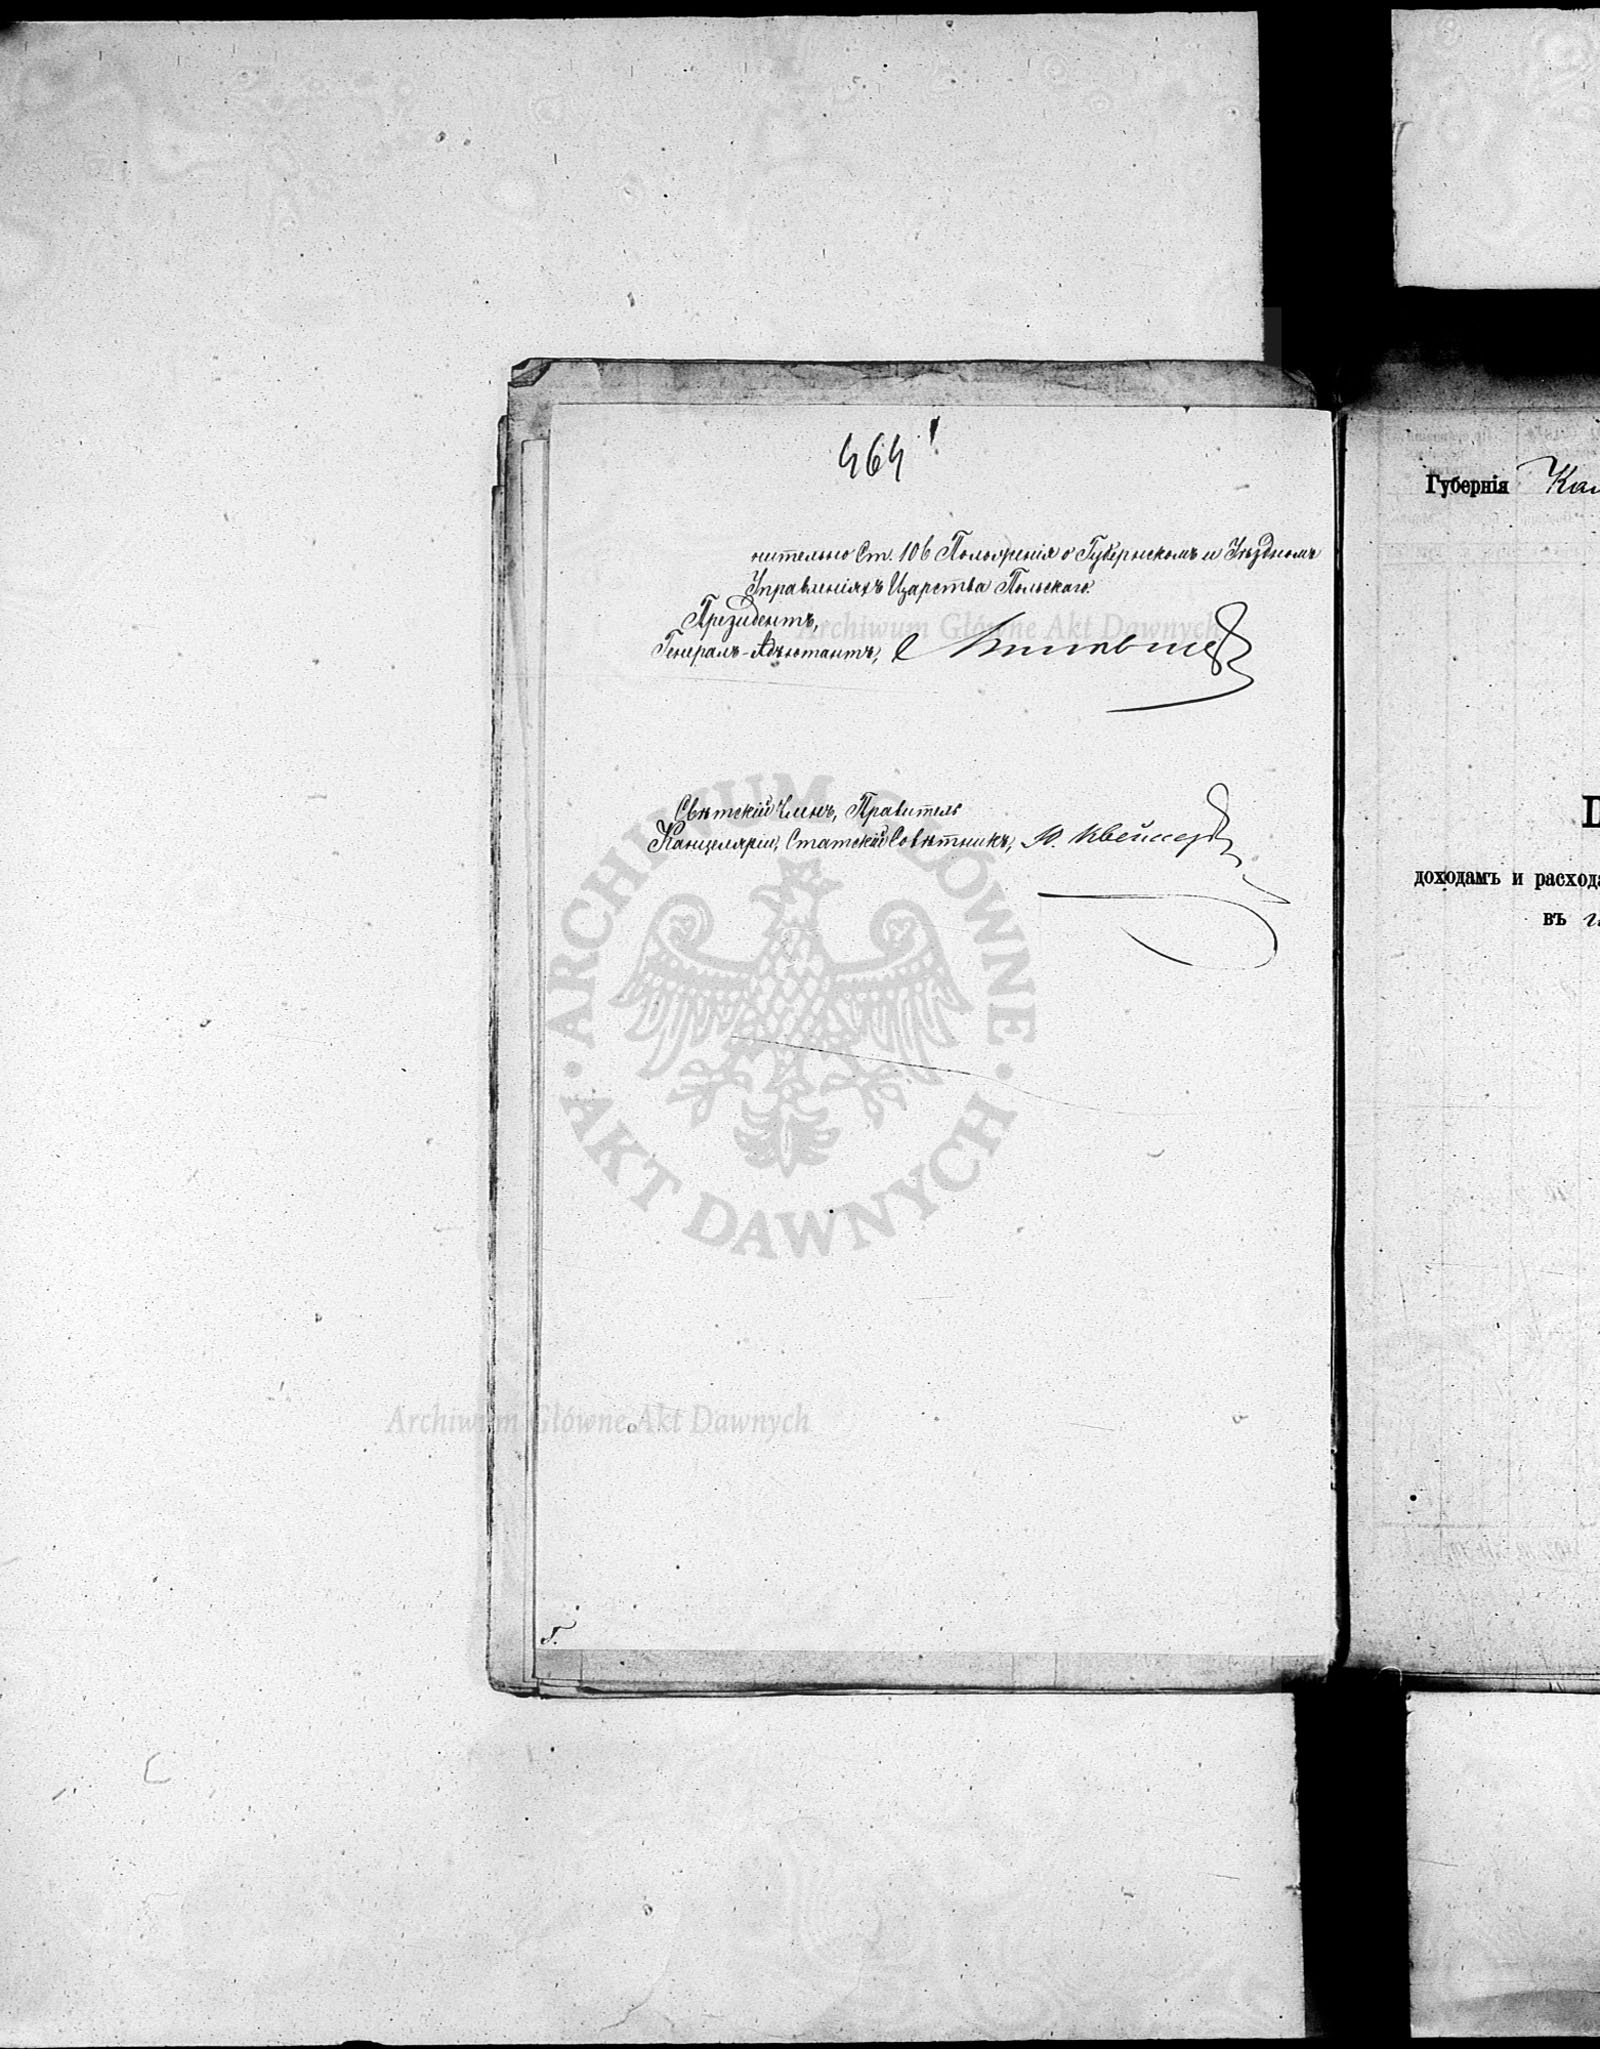 464
нительно Ст. 106 Положенія о Губернскомъ и Уѣздномъ
Управленіяхъ Царства Польскаго.
Президентъ,
Генералъ-Адъютантъ,
Свѣтскій Членъ, Правитель
Канцеляріи, Статскій Совѣтникъ,
Archiwum Główne Akt Dawnych
ARCHIWUM GŁÓWNE
AKT DAWNYCH
Archiwum Główne Akt Dawnych
Губернія
доходамъ и
въ